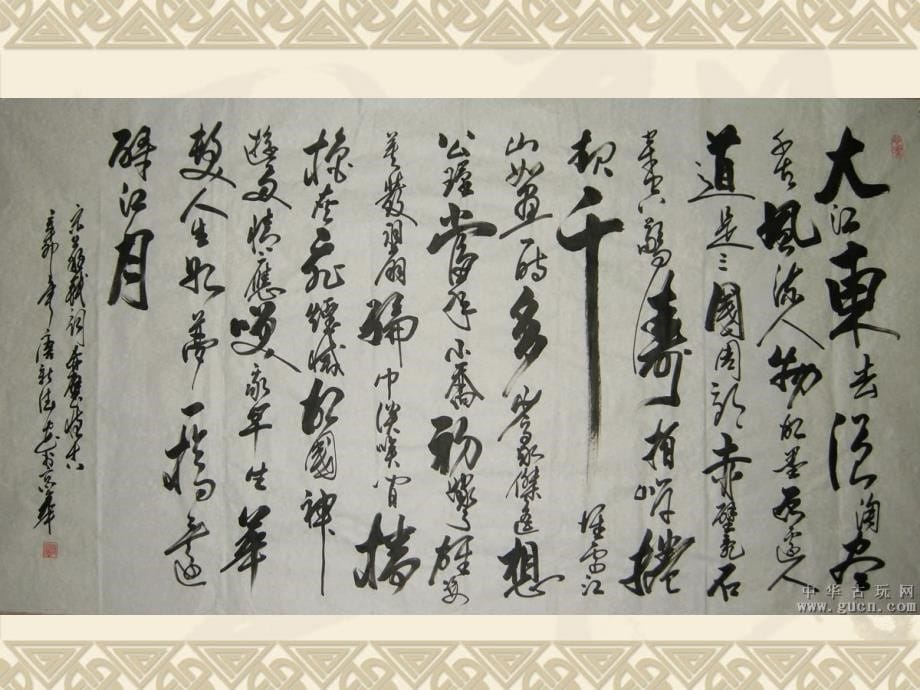 大江東去浪淘尽
千古風流人物故壘西邊人
道是三國周郎赤壁乱石
空驚濤拍岸捲
起千堆雪江
山如畫時多少豪傑遥想
公瑾當年小喬初嫁了雄姿
英發羽扇綸巾談笑間檣
櫓灰飛煙滅故國神
遊多情應笑我早生華
髮人生如夢一樽還
酹江月
蘇軾詞赤壁懷古
辛卯年唐書京華
中华古玩网
www.gucn.com